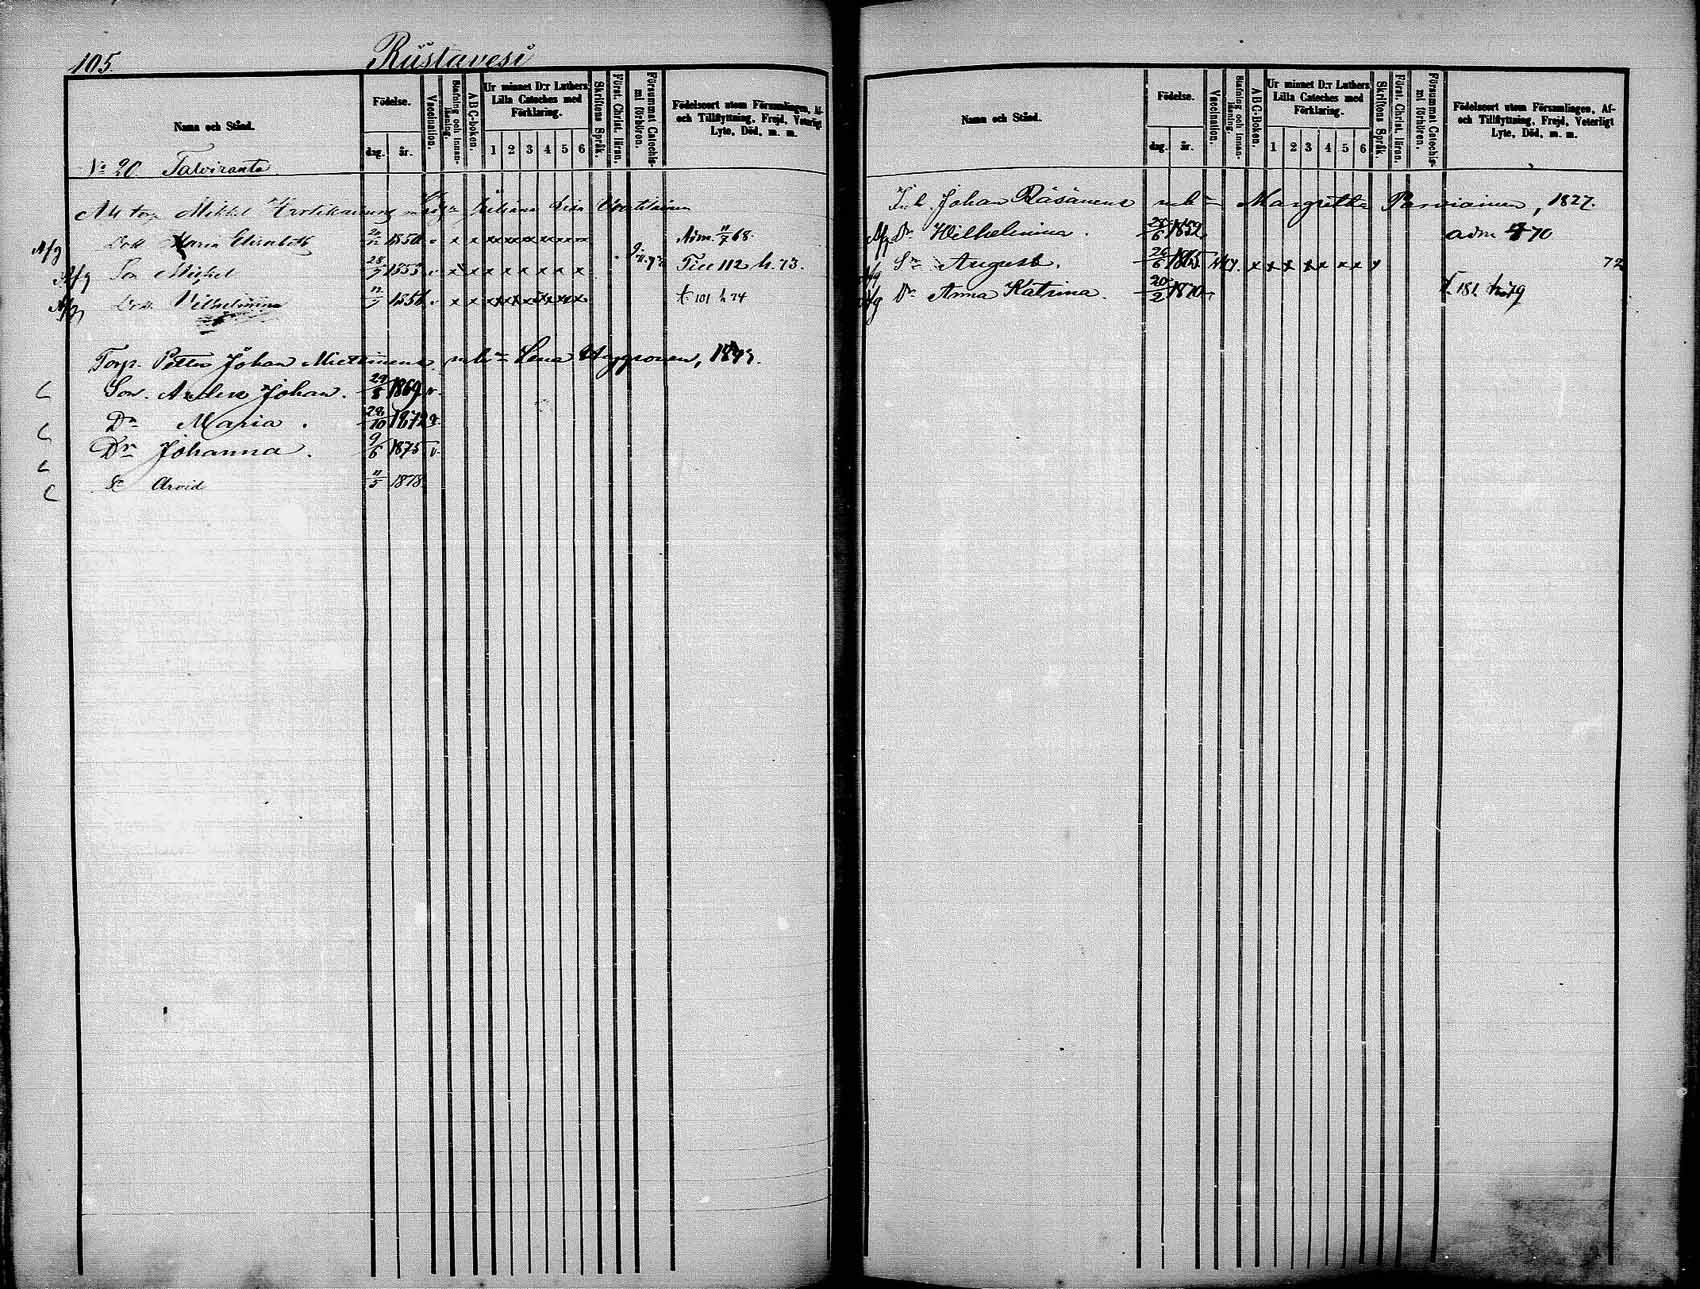 105.
Riistavesi
Nama och Stånd.
Födelse.
dag.
år.
Vaccination.
Stafning och Innanläsning.
ABC-boken.
Ur minnet D:r Luthers Lilla Cateches med Förklaring.
1 2 3 4 5 6
Skriftens Språk.
Först. Christ. läran.
Försummat Catechismi förhören.
Födelseort utom Församlingen, Af- och Tillflyttning, Frejd, Veterligt Lyte, Död, m. m.
No 20 Talviranta
Mikkel
Afg Dott Maria Elisabeth 1850 v x x x x x x x x x Adm. 11/7 68.
Afg Son Mickel 28/7 1853 v x x x x x x x x x Till 112 h. 73.
Afg Dott. Vilhelmina 11/5 1856 v x x x x x x x x x t. 101 h 74
Torp. Petter Johan Miettinens
Son. Anders Johan. 1869 v.
Dr Maria. 28/10 1872
Dr Johanna. 9/6 1875 v.
Sn Arvid 11/5 1878.
Nama och Stånd.
Födelse.
dag.
år.
Vaccination.
Stafning och Innanläsning.
ABC-boken.
Ur minnet D:r Luthers Lilla Cateches med Förklaring.
1 2 3 4 5 6
Skriftens Språk.
Först. Christ. läran.
Försummat Catechismi förhören.
Födelseort utom Församlingen, Af- och Tillflyttning, Frejd, Veterligt Lyte, Död, m. m.
Inh. Johan Räsänens Margretha Parviainen, 1827.
Afg Dr Wilhelmina. 1852 adm 70
Afg Sn August. 26/6 1865 x x x x x x x 72
Afg Dr Anna Katrina. 20/2 1870 t. 181 h 79